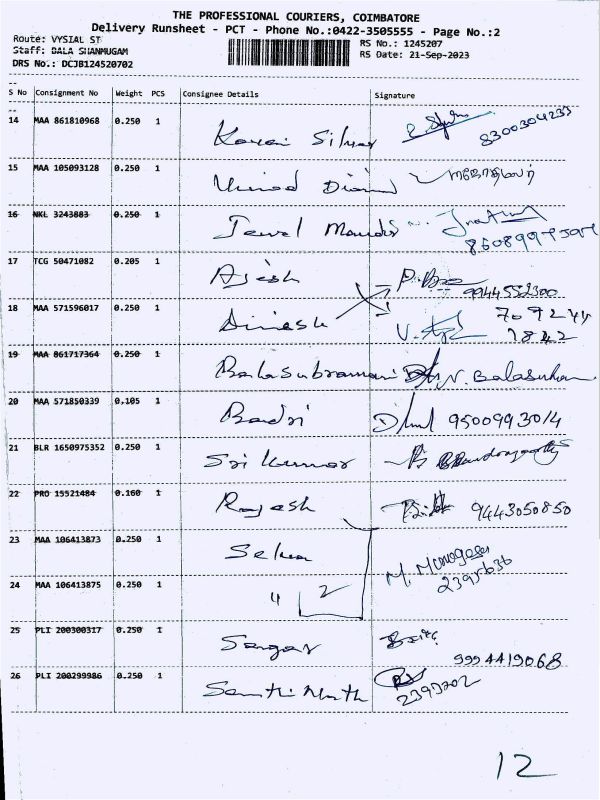 THE PROFESSIONAL COURIERS, COIMBATORE
Delivery Runsheet - PCT - Phone No.:0422-3505555 - Page No.:2
Route: VYSIAL ST
RS No.: 1245207
Staff: BALA SHANMUGAM
RS Date: 21-Sep-2023
DRS No.: DCJB124520702
S No Consignment No Weight PCS Consignee Details Signature
14 MAA 861810968 0.250 1 8300304233
15 MAA 105093128 0.250 1 Vinod
16 NKL 3243883 0.250 1
17 TCG 50471082 0.205 1 Ajesh 9944552300
18 MAA 571596017 0.250 1 Dinesh 709244
1842
19 MAA 861717364 0.250 1 Balasubramani N. Balasubram
20 MAA 571850339 0.105 1 Badri 9500993014
21 BLR 1650975352 0.250 1 Sri Kumar
22 PRO 15521484 0.160 1 Rajesh 9443050850
23 MAA 106413873 0.250 1 Selva
24 MAA 106413875 0.250 1 " 2
25 PLI 200300317 0.250 1 Sangar
9994419068
26 PLI 200299986 0.250 1
12